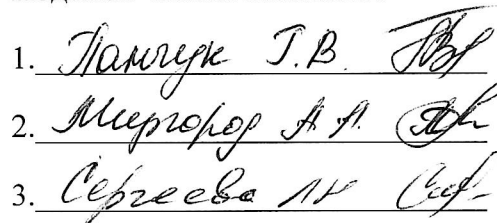 1. Панчук Г.В.
2. Миргород А.А.
3. Сергеева